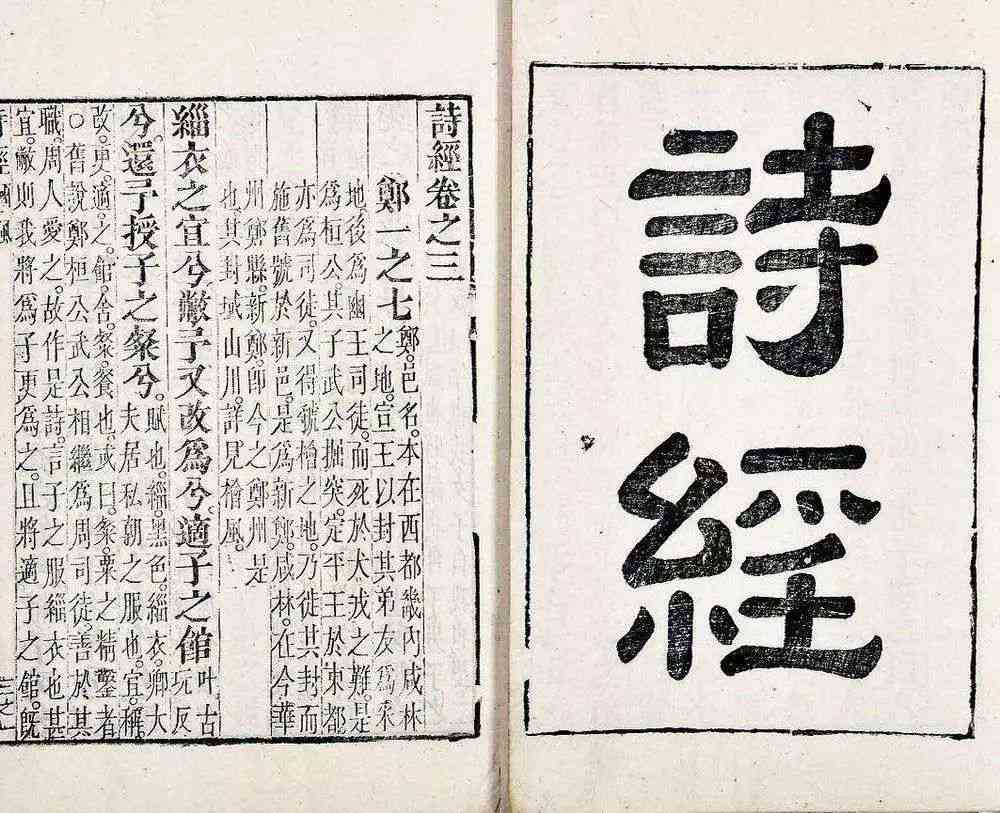 詩經
詩經卷之三
鄭一之七鄭。邑名。本在西都畿內咸林
之地。宣王以封其弟友爲采
地後爲幽王司徒。而死於犬戎之難。是
爲桓公。其子武公掘突。定平王於東都
亦爲司徒。又得虢檜之地。乃徙其封而
施舊號於新邑。是爲新鄭。咸林。在今華
州鄭縣。新鄭。卽今之鄭州是
也其封域山川。詳見檜風。
緇衣之宜兮敝予又改爲兮。適子之館叶古
玩反
兮。還予授子之粲兮。賦也。緇。黑色。緇衣。卿大
夫居私朝之服也。宜。稱。
改。更。適。之。館。舍。粲。餐也。或曰。粲。粟之精鑿者
○舊說鄭桓公武公相繼爲周司徒。善於其
職。周人愛之。故作是詩。言子之服緇衣也甚
宜。敝則我將爲子更爲之。且將適子之館。旣